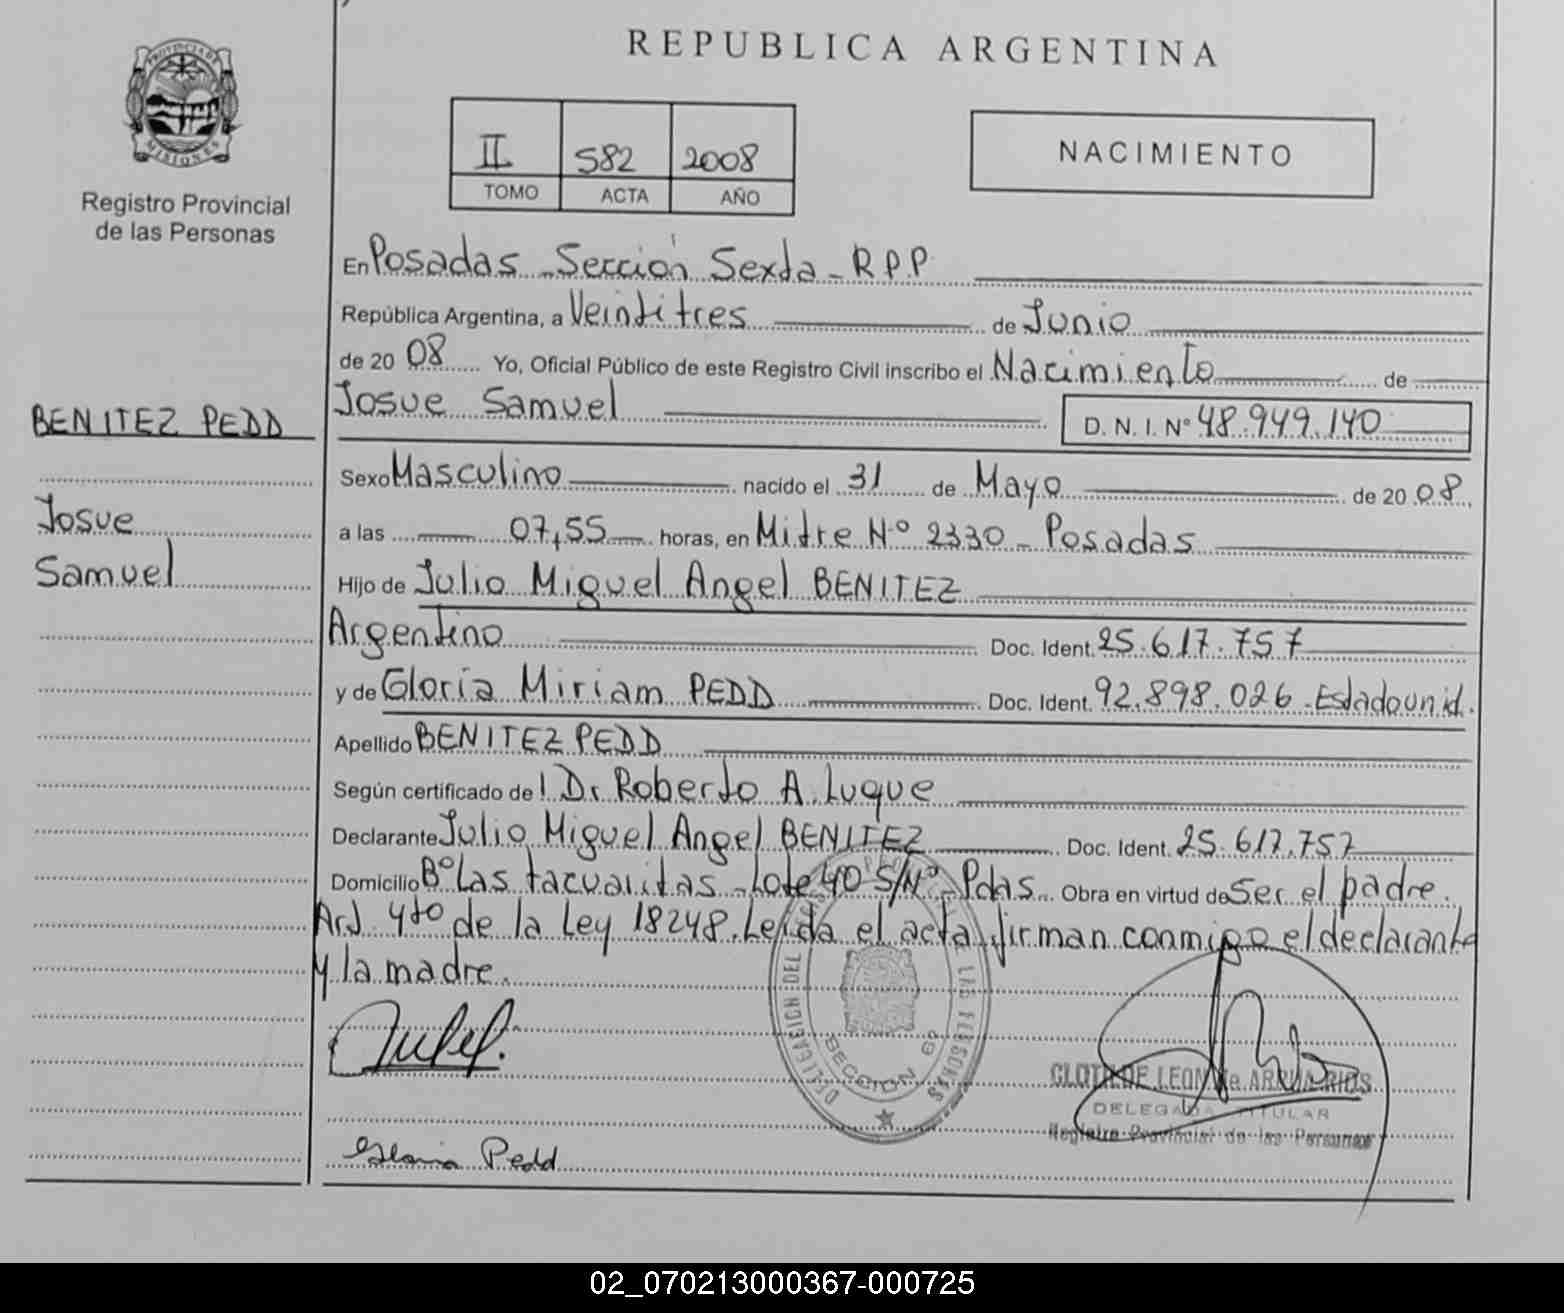 REPUBLICA ARGENTINA
PROVINCIA DE MISIONES
Registro Provincial
de las Personas
II 582 2008
TOMO ACTA AÑO
NACIMIENTO
En Posadas Sección Sexta - R P P
República Argentina, a Veintitres de Junio
de 20 08 Yo, Oficial Público de este Registro Civil inscribo el Nacimiento de
Josue Samuel D. N. I. Nº 48.949.140
BENITEZ PEDD
Josue
Samuel
Sexo Masculino nacido el 31 de Mayo de 20 08
a las 07,55 horas, en Mitre Nº 2330 - Posadas
Hijo de Julio Miguel Angel BENITEZ
Argentino Doc. Ident. 25.617.757
y de Gloria Miriam PEDD Doc. Ident. 92.898.026 - Estadounid.
Apellido BENITEZ PEDD
Según certificado de l Dr Roberto A. Luque
Declarante Julio Miguel Angel BENITEZ Doc. Ident. 25.617.757
Domicilio Bº Las tacuaritas - Lote 40 S/Nº - Pdas. Obra en virtud de Ser el padre.
Art 4to de la Ley 18248. Leida el acta firman conmigo el declarante
y la madre.
DELEGACION DEL REGISTRO PROVINCIAL DE LAS PERSONAS
SECCION 6º
CLOTILDE LEON de ARRUA RIOS
DELEGADA TITULAR
Registro Provincial de las Personas
Gloria Pedd
02_070213000367-000725